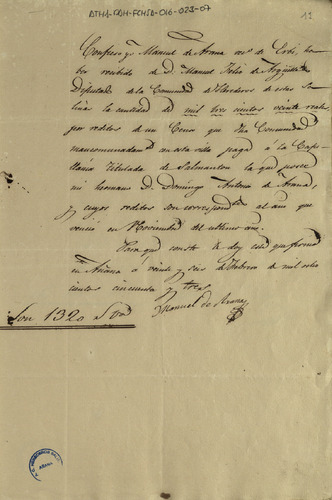 ATHA-FAH-FCHSA-016-023-07
12
Confieso yo Manuel de Arana vecº de Orbi, ha-
ber recibido de D. Manuel Felix de
Diputado de la Comunidad de Herederos de estas Sa-
linas la cantidad de mil tres cientos veinte reales
por reditos de un Censo que dha Comunidad
mancomunadam en esta villa paga á la Cape-
llania Titulada de Salmanton la que posee
mi hermano D. Domingo Antonio de Arana,
y cuyos reditos son correspondtes al año que
venció en Noviembre del ultimo año.
Para que conste le doy este que firmo
en Añana á veinte y seis de Febrero de mil ocho
cientos cincuenta y tres
Son 1320 rs von
Manuel de Arana